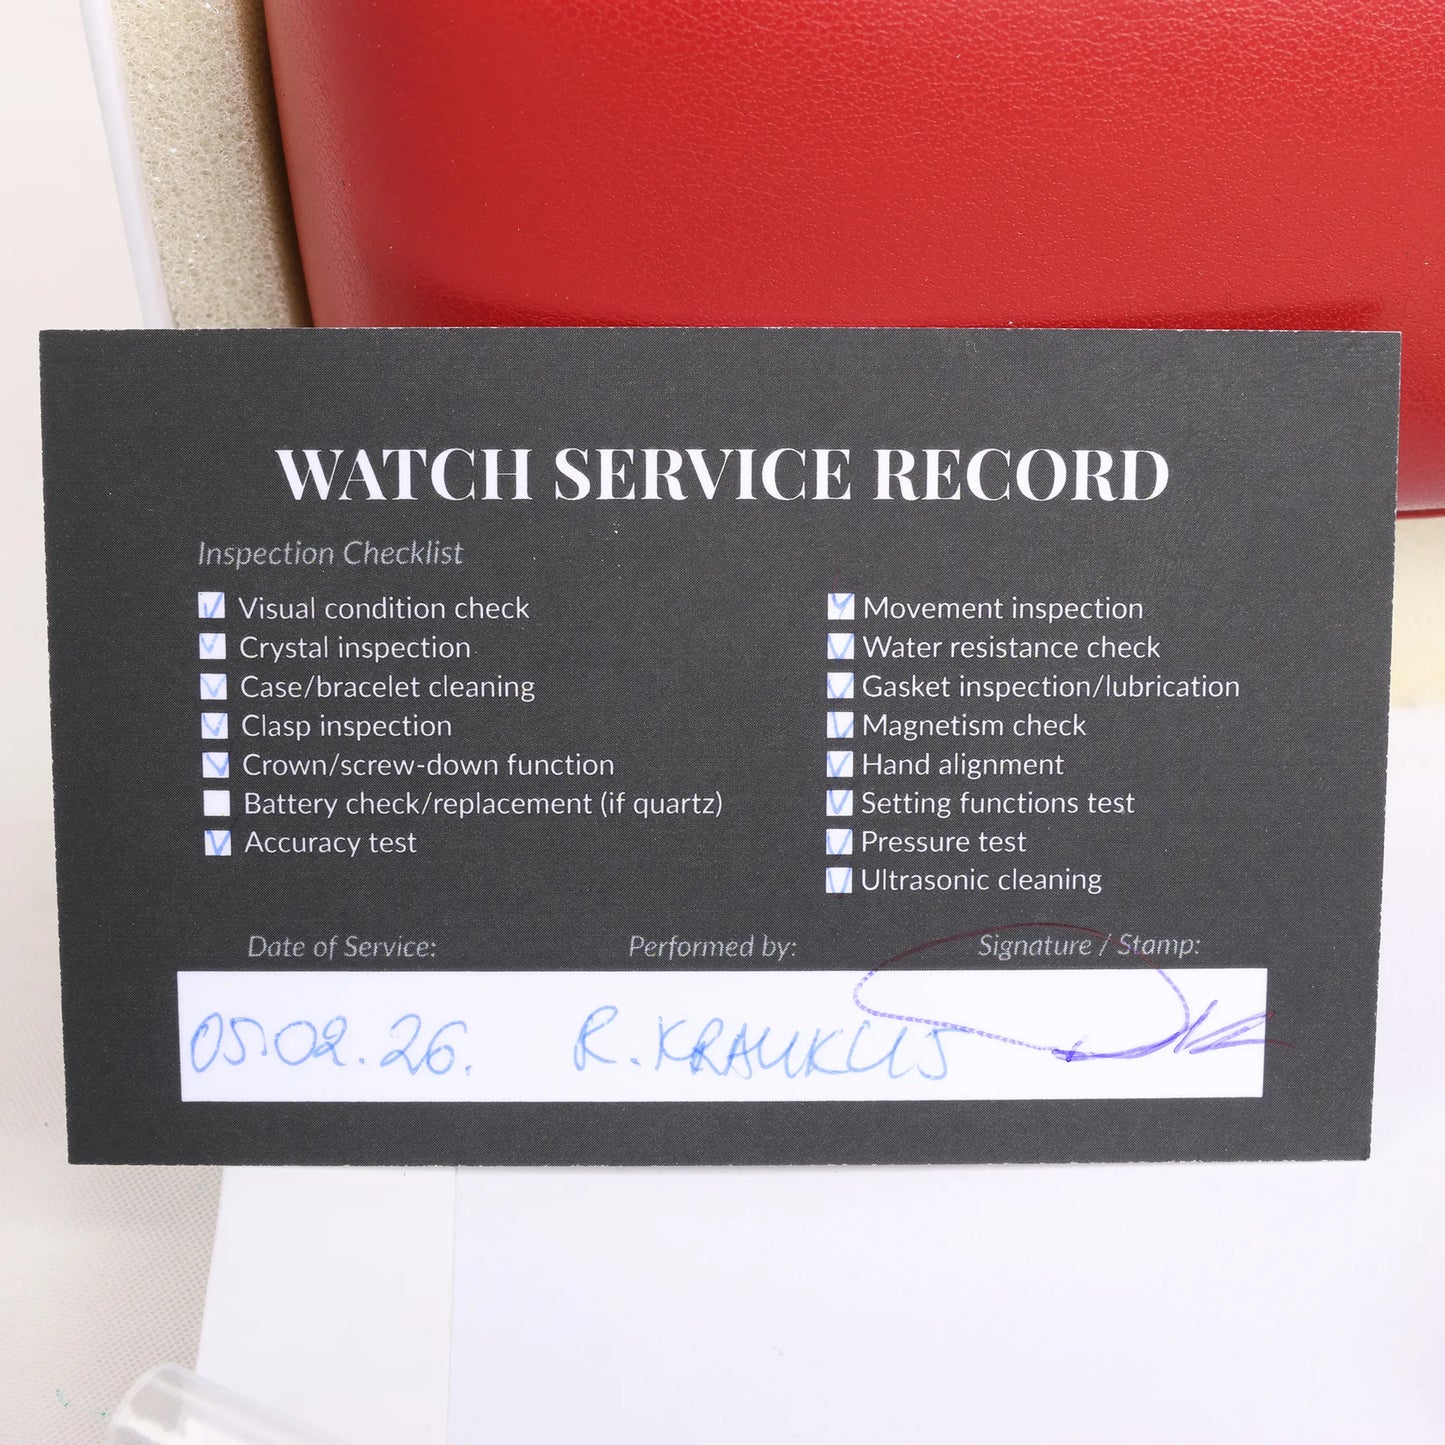 WATCH SERVICE RECORD
Inspection Checklist
Visual condition check
Crystal inspection
Case/bracelet cleaning
Clasp inspection
Crown/screw-down function
Battery check/replacement (if quartz)
Accuracy test
Movement inspection
Water resistance check
Gasket inspection/lubrication
Magnetism check
Hand alignment
Setting functions test
Pressure test
Ultrasonic cleaning
Date of Service: Performed by: Signature / Stamp:
05.02.26. R. KRAUKLIS